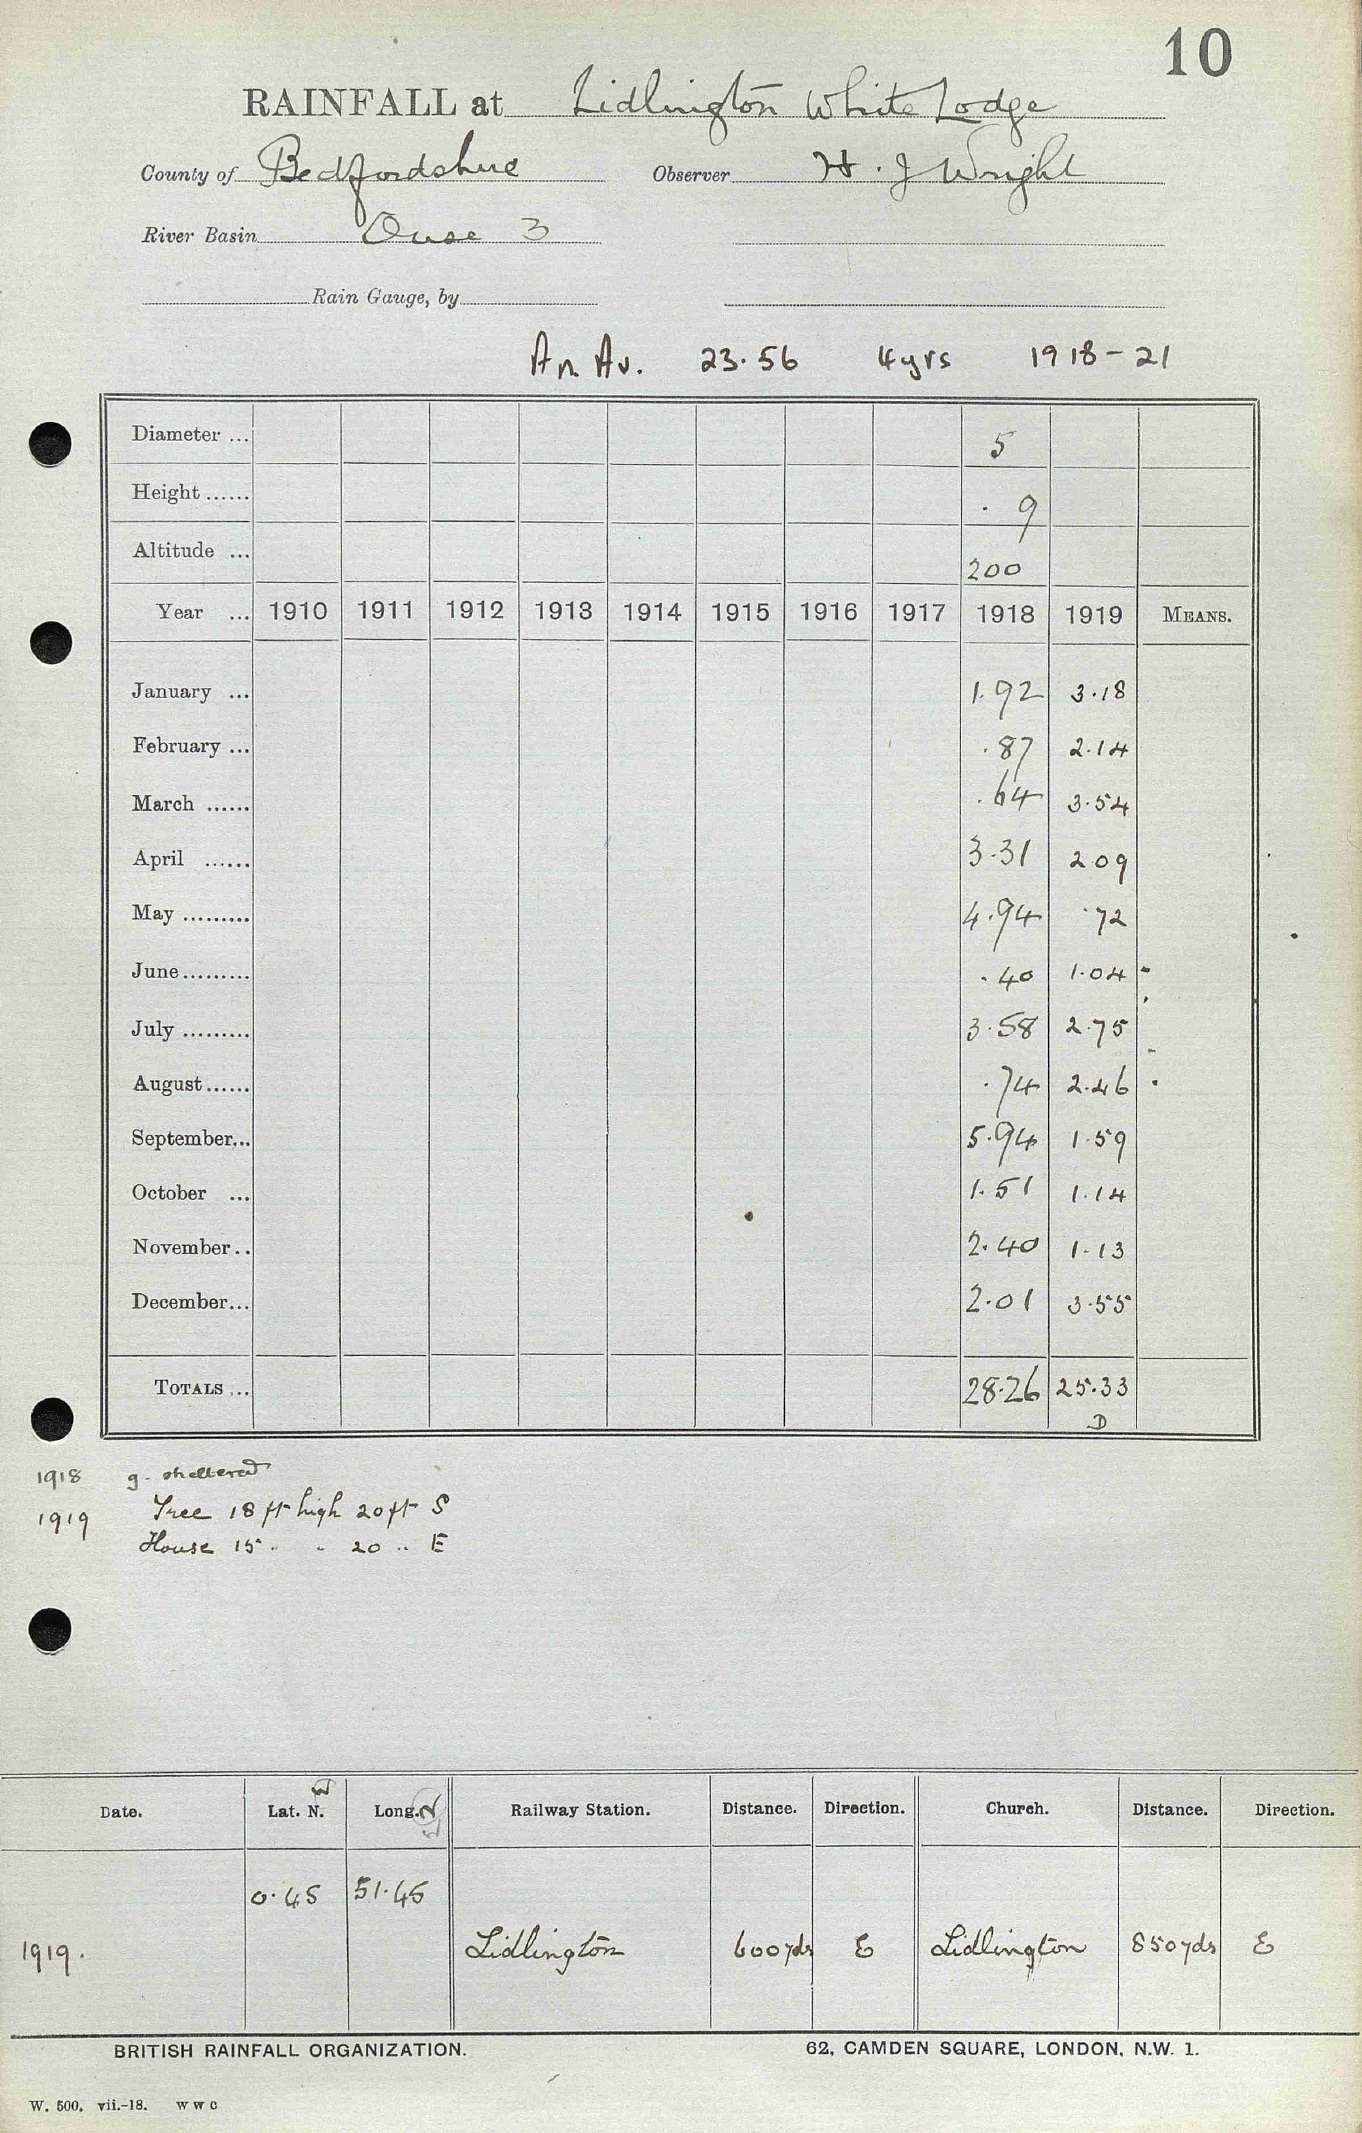 10
RAINFALL at Lidlington White Lodge
County of Bedfordshire Observer H. J Wright
River Basin Ouse 3
Rain Gauge, by
An Av. 23.56 4yrs 1918-21
Diameter ... 5
Height ...... .9
Altitude ... 200
Year ... 1910 1911 1912 1913 1914 1915 1916 1917 1918 1919 MEANS.
January ... 1.92 3.18
February ... .87 2.14
March ...... .64 3.54
April ...... 3.31 2.09
May ......... 4.94 .72
June......... .40 1.04
July ......... 3.58 2.75
August...... .74 2.46
September... 5.94 1.59
October ... 1.51 1.14
November.. 2.40 1.13
December... 2.01 3.55
TOTALS ... 28.26 25.33
D
1918 g. sheltered
1919 Tree 18 ft high 20 ft S
House 15 " " 20 " E
Date. Lat. N. W Long. N Railway Station. Distance. Direction. Church. Distance. Direction.
0.45 51.45
1919. Lidlington 600 yds E Lidlington 850 yds E
BRITISH RAINFALL ORGANIZATION. 62, CAMDEN SQUARE, LONDON, N.W. 1.
W. 500. vii.-18. W W C